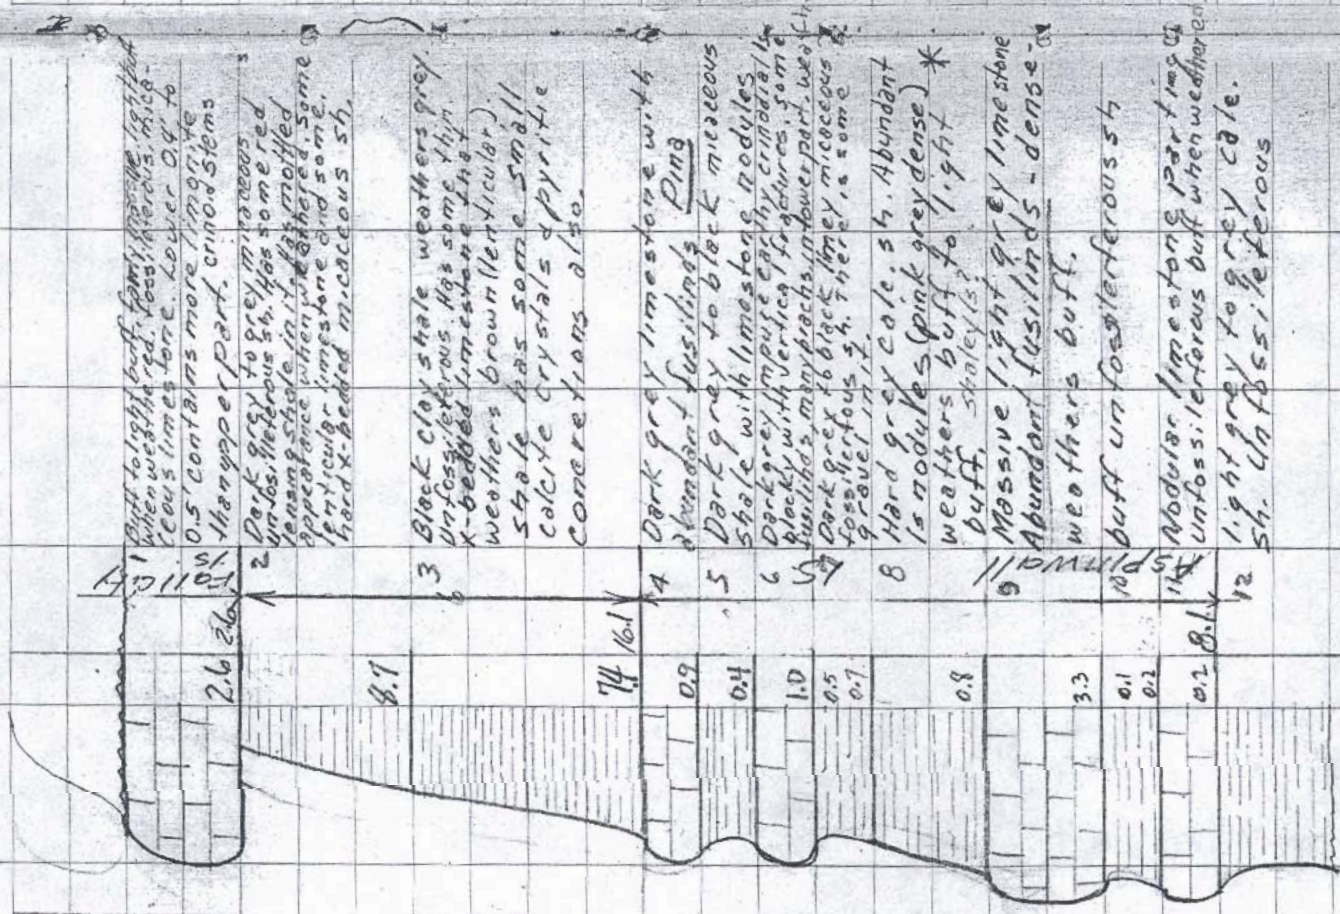 Fall City
ls
1
Buff to light buff,
when weathered. fossiliferous, mica-
ceous limestone. Lower 0.4' to
0.5' contains more limonite
than upper part. crinoid stems
2.6 2.6
2
Dark grey to grey micaceous
unfossiliferous sh. Has some red
lensing shale in it. Has mottled
appearance when weathered. Some
lenticular limestone and some
hard x-bedded micaceous sh.
8.7
3
Black clay shale weathers grey.
unfossiliferous. Has some thin
x-bedded limestone that
weathers brown (lenticular).
shale has some small
calcite crystals & pyritic
concretions also.
7.4 16.1
4
Dark grey limestone with
abundant fusilinds Pina
0.9
5
Dark grey to black micaceous
shale with limestone nodules
0.4
6
Dark grey impure earthy crinodial ls
blocky with vertical fractures. some
fusilinds many brachs. in lower part.
1.0
Dark grey to black limey micaceous
fossilerfous sh. There is some
gravel in it.
0.5
0.7
8
Hard grey calc. sh. Abundant
ls nodules (pink grey dense) *
weathers buff to light
buff. shaley ls?
0.8
9
Aspinwall
Massive light grey limestone
Abundant fusilinds - dense -
weathers buff.
3.3
10
buff unfossilerferous sh
0.1
0.2
11
Nodular limestone parting
unfossilerferous buff when weathered
0.2 8.1
12
light grey to grey calc.
sh. Unfossiliferous